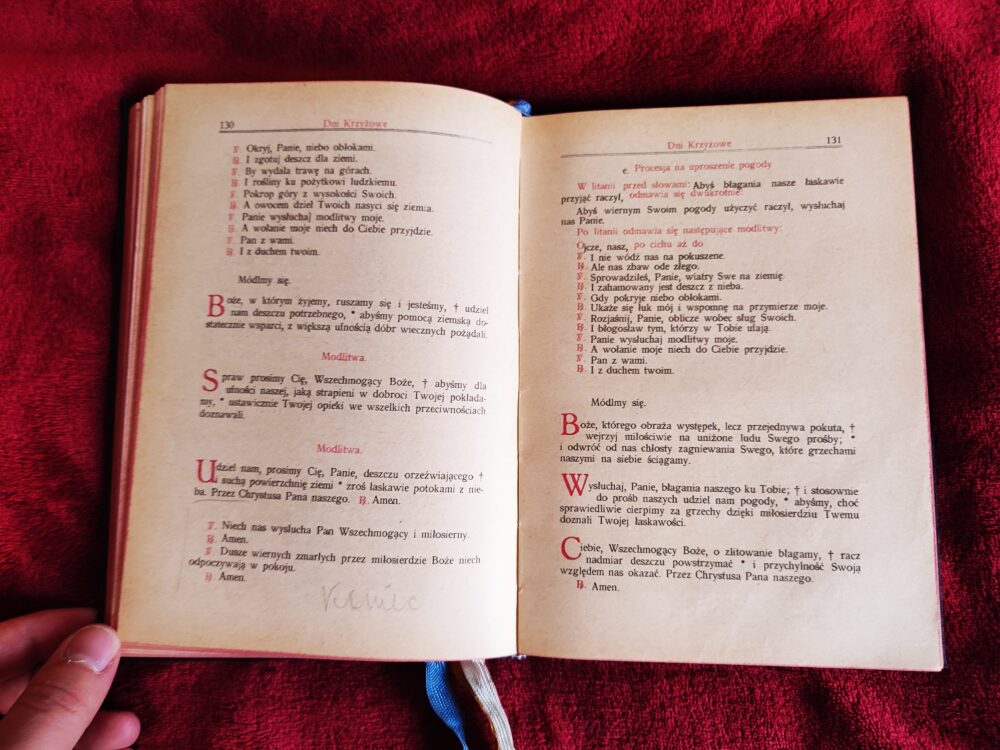 130 Dni Krzyżowe
℣. Okryj, Panie, niebo obłokami.
℟. I zgotuj deszcz dla ziemi.
℣. By wydała trawę na górach.
℟. I rośliny ku pożytkowi ludzkiemu.
℣. Pokrop góry z wysokości Swoich.
℟. A owocem dzieł Twoich nasyci się ziemia.
℣. Panie wysłuchaj modlitwy moje.
℟. A wołanie moje niech do Ciebie przyjdzie.
℣. Pan z wami.
℟. I z duchem twoim.
Módlmy się.
Boże, w którym żyjemy, ruszamy się i jesteśmy, † udziel
nam deszczu potrzebnego, * abyśmy pomocą ziemską do-
statecznie wsparci, z większą ufnością dóbr wiecznych pożądali.
Modlitwa.
Spraw prosimy Cię, Wszechmogący Boże, † abyśmy dla
ufności naszej, jaką strapieni w dobroci Twojej pokłada-
my, * ustawicznie Twojej opieki we wszelkich przeciwnościach
doznawali.
Modlitwa.
Udziel nam, prosimy Cię, Panie, deszczu orzeźwiającego †
i suchą powierzchnię ziemi * zroś łaskawie potokami z nie-
ba. Przez Chrystusa Pana naszego. ℟. Amen.
℣. Niech nas wysłucha Pan Wszechmogący i miłosierny.
℟. Amen.
℣. Dusze wiernych zmarłych przez miłosierdzie Boże niech
odpoczywają w pokoju.
℟. Amen.
Dni Krzyżowe 131
e. Procesja na uproszenie pogody
W litanii przed słowami: Abyś błagania nasze łaskawie
przyjąć raczył, odmawia się dwukrotnie:
Abyś wiernym Swoim pogody użyczyć raczył, wysłuchaj
nas Panie.
Po litanii odmawia się następujące modlitwy:
Ojcze, nasz, po cichu aż do
℣. I nie wódź nas na pokuszene.
℟. Ale nas zbaw ode złego.
℣. Sprowadziłeś, Panie, wiatry Swe na ziemię.
℟. I zahamowany jest deszcz z nieba.
℣. Gdy pokryje niebo obłokami.
℟. Ukaże się łuk mój i wspomnę na przymierze moje.
℣. Rozjaśnij, Panie, oblicze wobec sług Swoich.
℟. I błogosław tym, którzy w Tobie ufają.
℣. Panie wysłuchaj modlitwy moje.
℟. A wołanie moje niech do Ciebie przyjdzie.
℣. Pan z wami.
℟. I z duchem twoim.
Módlmy się.
Boże, którego obraża występek, lecz przejednywa pokuta, †
wejrzyj miłościwie na uniżone ludu Swego prośby; *
i odwróć od nas chłosty zagniewania Swego, które grzechami
naszymi na siebie ściągamy.
Wysłuchaj, Panie, błagania naszego ku Tobie; † i stosownie
do próśb naszych udziel nam pogody, * abyśmy, choć
sprawiedliwie cierpimy za grzechy dzięki miłosierdziu Twemu
doznali Twojej łaskawości.
Ciebie, Wszechmogący Boże, o zlitowanie błagamy, † racz
nadmiar deszczu powstrzymać * i przychylność Swoją
względem nas okazać. Przez Chrystusa Pana naszego.
℟. Amen.